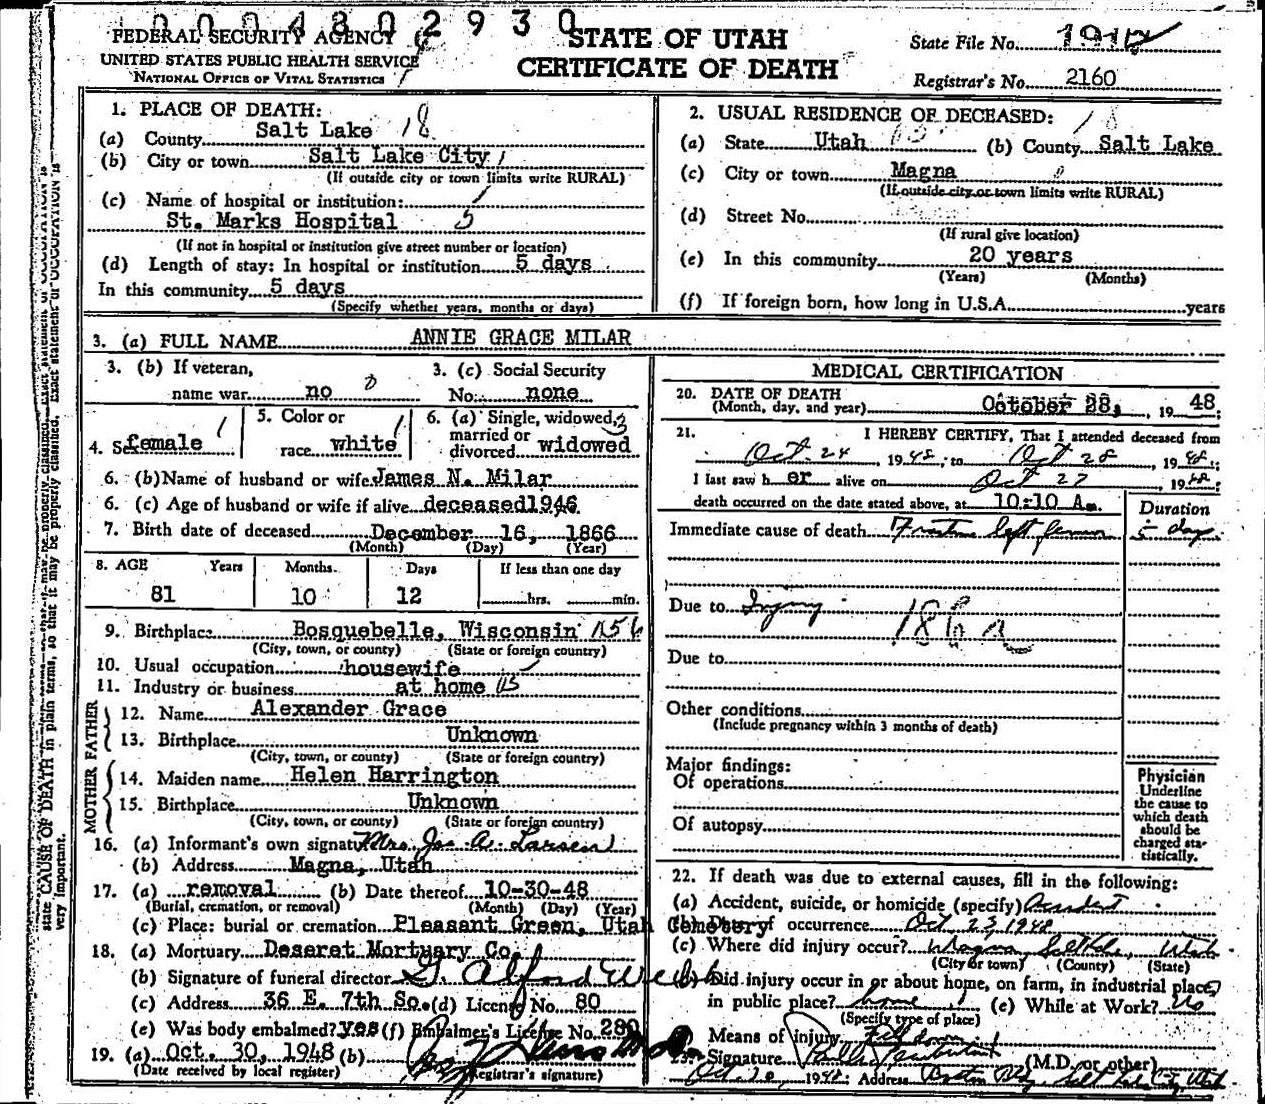 0004802930
FEDERAL SECURITY AGENCY
UNITED STATES PUBLIC HEALTH SERVICE
NATIONAL OFFICE OF VITAL STATISTICS
STATE OF UTAH
CERTIFICATE OF DEATH
State File No.
Registrar's No. 2160
1. PLACE OF DEATH:
(a) County Salt Lake 18
(b) City or town Salt Lake City
(If outside city or town limits write RURAL)
(c) Name of hospital or institution:
St. Marks Hospital 5
(If not in hospital or institution give street number or location)
(d) Length of stay: In hospital or institution 5 days
In this community 5 days
(Specify whether years, months or days)
2. USUAL RESIDENCE OF DECEASED: 18
(a) State Utah (b) County Salt Lake
(c) City or town Magna
(If outside city or town limits write RURAL)
(d) Street No.
(If rural give location)
(e) In this community 20 years
(Years) (Months)
(f) If foreign born, how long in U.S.A. years
3. (a) FULL NAME ANNIE GRACE MILAR
3. (b) If veteran,
name war no 0
3. (c) Social Security
No. none
4. Sex female 1
5. Color or
race white 1
6. (a) Single, widowed, 3
married or
divorced widowed
6. (b) Name of husband or wife James N. Milar
6. (c) Age of husband or wife if alive deceased 1946
7. Birth date of deceased December 16, 1866
(Month) (Day) (Year)
8. AGE Years Months Days If less than one day
81 10 12 hrs. min.
9. Birthplace Bosquebelle, Wisconsin
(City, town, or county) (State or foreign country)
10. Usual occupation housewife
11. Industry or business at home
FATHER
12. Name Alexander Grace
13. Birthplace Unknown
(City, town, or county) (State or foreign country)
MOTHER
14. Maiden name Helen Harrington
15. Birthplace Unknown
(City, town, or county) (State or foreign country)
16. (a) Informant's own signature Mrs. Jos. A. Larsen
(b) Address Magna, Utah
17. (a) removal (b) Date thereof 10-30-48
(Burial, cremation, or removal) (Month) (Day) (Year)
(c) Place: burial or cremation Pleasant Green, Utah Cemetery
18. (a) Mortuary Deseret Mortuary Co.
(b) Signature of funeral director
(c) Address 36 E. 7th So. (d) License No. 80
(e) Was body embalmed? yes (f) Embalmer's License No. 280
19. (a) Oct. 30, 1948 (b)
(Date received by local register) (Registrar's signature)
MEDICAL CERTIFICATION
20. DATE OF DEATH
(Month, day, and year) October 28, 1948
21. I HEREBY CERTIFY, That I attended deceased from
Oct 24, 1948, to Oct 28, 1948;
I last saw h er alive on Oct 27 1948;
death occurred on the date stated above, at 10:10 A m.
Duration
Immediate cause of death Fracture left femur 5 days
Due to Injury 186a
Due to
Other conditions
(Include pregnancy within 3 months of death)
Major findings:
Of operations
Of autopsy
Physician
Underline
the cause to
which death
should be
charged sta-
tistically.
22. If death was due to external causes, fill in the following:
(a) Accident, suicide, or homicide (specify) Accident
(b) Date of occurrence Oct 23, 1948
(c) Where did injury occur? Magna Salt Lake, Utah
(City or town) (County) (State)
(d) Did injury occur in or about home, on farm, in industrial place,
in public place? home (e) While at Work? No
(Specify type of place)
Means of injury Fell down
23. Signature (M.D. or other)
1948; Address Salt Lake City, Utah
state CAUSE OF DEATH in plain terms, so that it may be properly classified. Exact statement of OCCUPATION is
very important.